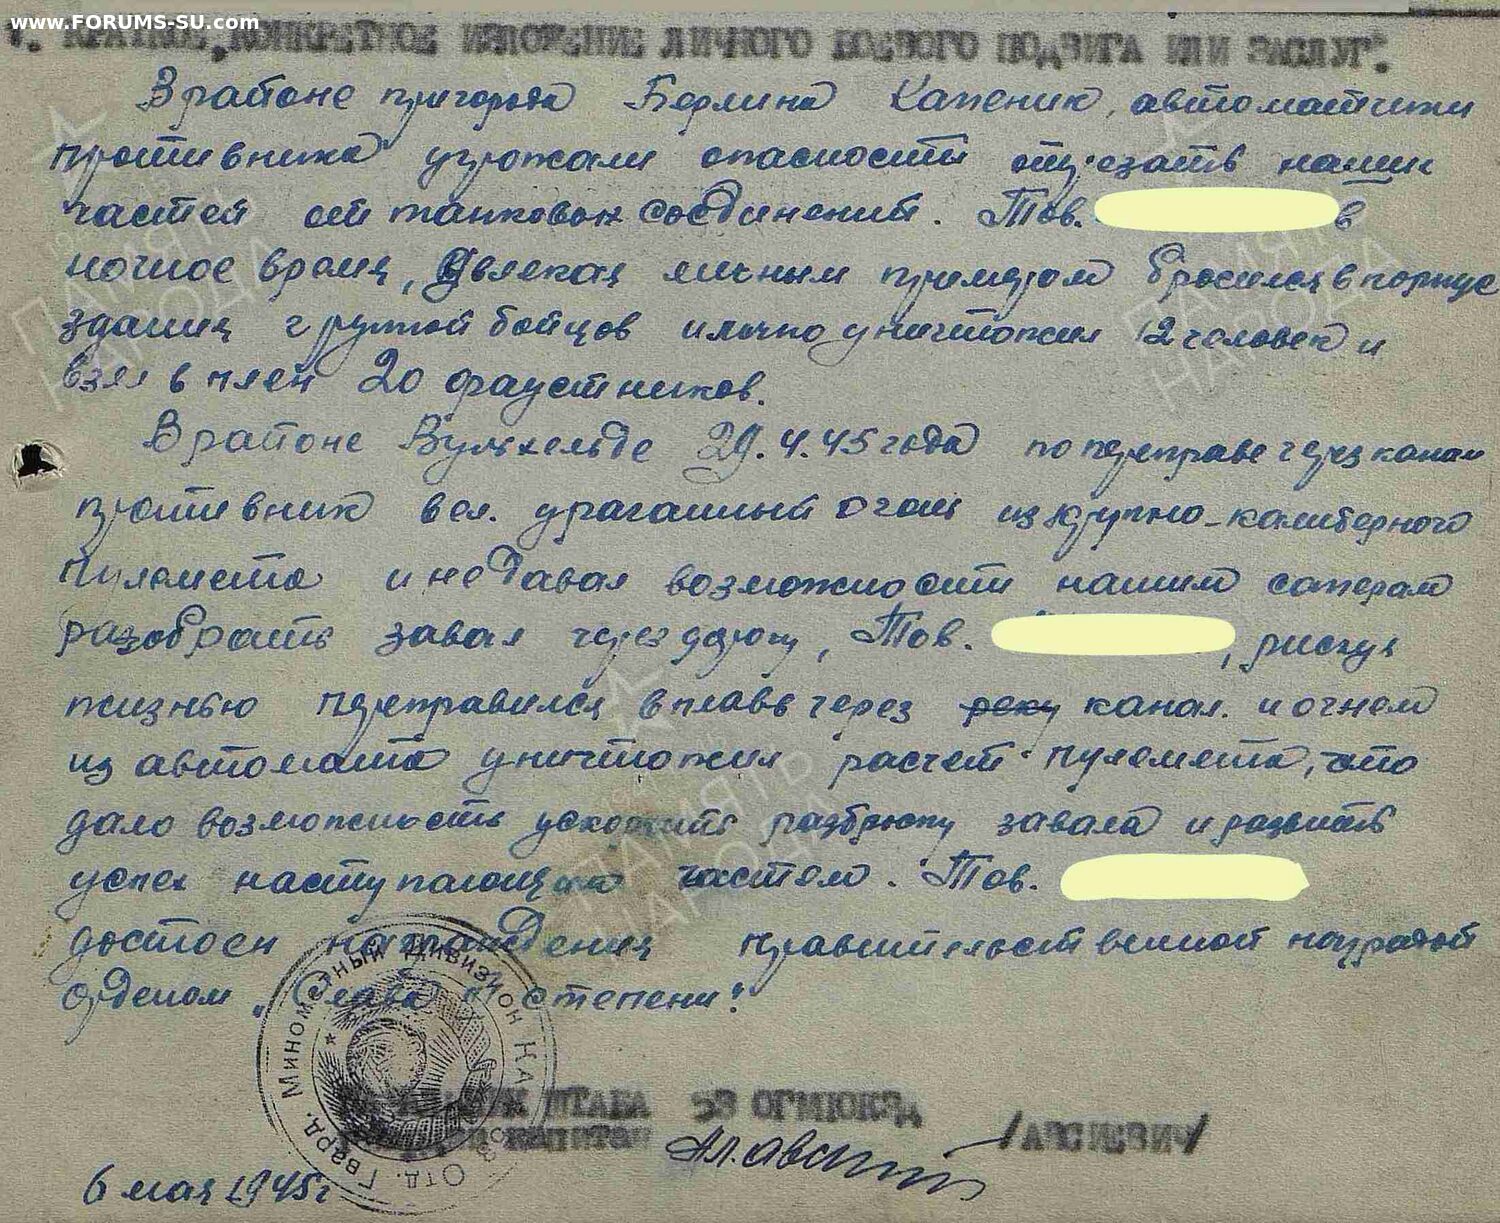 www.FORUMS-SU.com
1. КРАТКОЕ, КОНКРЕТНОЕ ИЗЛОЖЕНИЕ ЛИЧНОГО БОЕВОГО ПОДВИГА ИЛИ ЗАСЛУГ.
В районе пригорода Берлина Капеник, автоматчики
противника угрожали опасности отрезать наших
частей от танковых соединений. Тов. в
ночное время, увлекая личным примером бросился в корпус
здания группой бойцов и лично уничтожил 12 человек и
взял в плен 20 фаустников.
В районе Вульхельде 29.4.45 года по переправе через канал
противник вел ураганный огонь из крупно-калиберного
пулемета и не давал возможности нашим саперам
разобрать завал через дорогу, Тов. , рискуя
жизнью переправился вплавь через реку канал. и огнем
из автомата уничтожил расчет пулемета, что
дало возможность ускорить разборку завала и развить
успех наступающим частям. Тов.
достоен награждения правительственной наградой
орденом „Слава" степени."
ШТАБА ОГМЮКЗД
капитан /АВСИЕВИЧ/
6 мая 1945 г
Отд. Гвард. Минометный Дивизион
ПАМЯТЬ НАРОДА
ПАМЯТЬ НАРОДА
ПАМЯТЬ НАРОДА